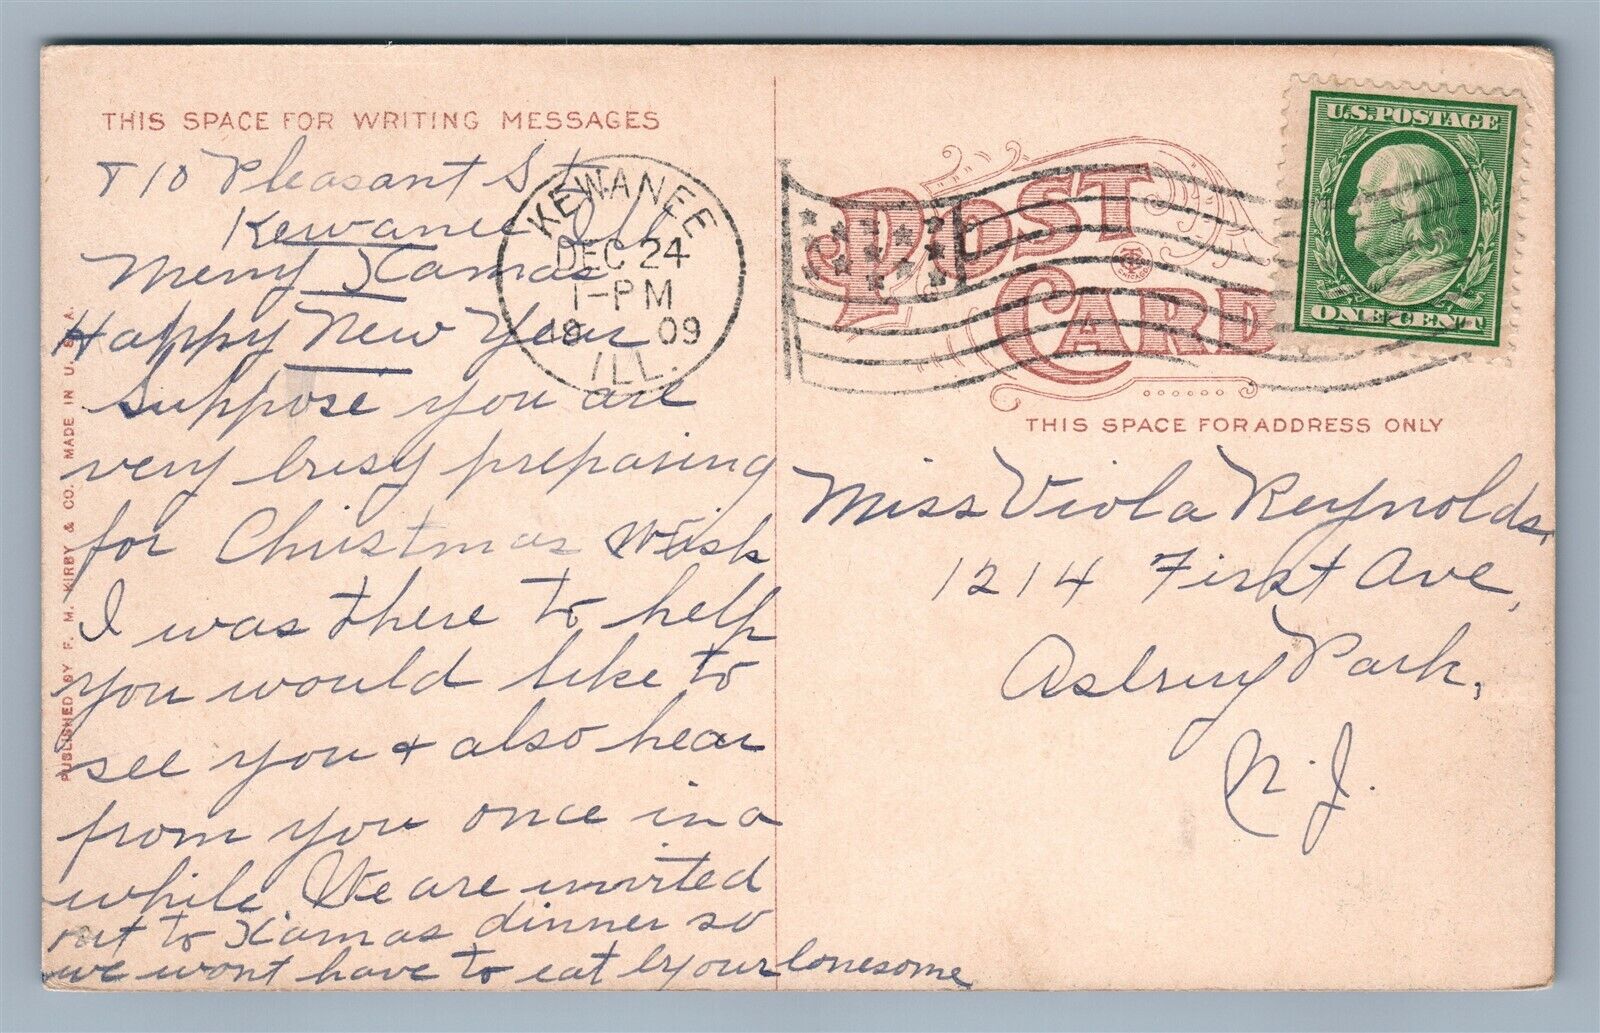 THIS SPACE FOR WRITING MESSAGES
710 Pleasant St
Kewanee Ill
Merry Xamas
Happy New Year
Suppose you are
very busy preparing
for Christmas Wish
I was there to help
you would like to
see you & also hear
from you once in a
while. We are invited
out to Xamas dinner so
we wont have to eat by our lonesome
PUBLISHED BY F. M. KIRBY & CO. MADE IN U. S. A.
KEWANEE
DEC 24
1-PM
1909
ILL.
POST CARD
U.S. POSTAGE
ONE CENT
THIS SPACE FOR ADDRESS ONLY
Miss Viola Reynolds,
1214 First Ave,
Asbury Park,
N.J.